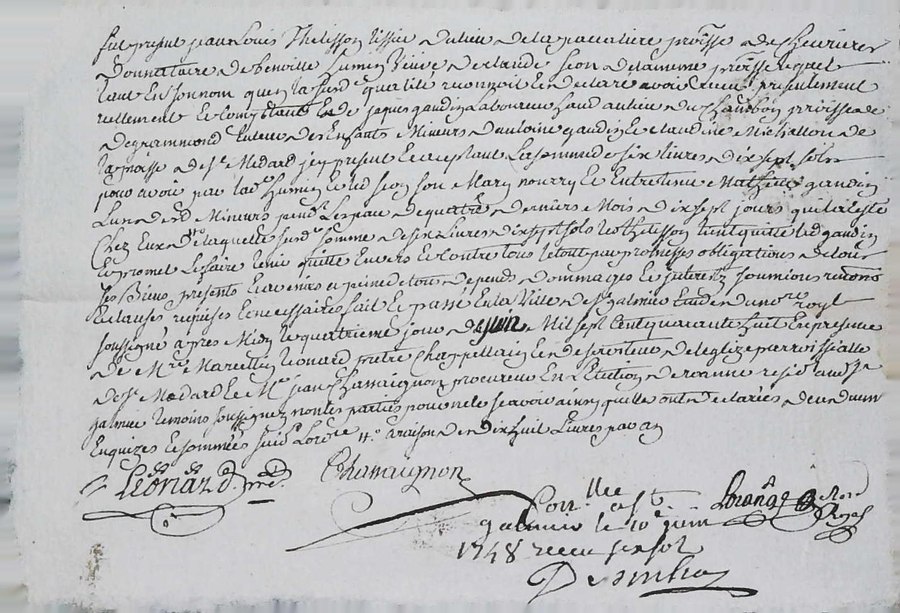 fut present jean Louis Thelisson tissie du lieu de la pacaliere proisse de Chevrieres
Donnataire de benoitte humen veuve de claude sion de la mure proisse
tant en son nom que en la susd qualité reconnoit et declaré avoir receu presentement
reellement et Comptant de jaques gaudin Laboureur du lieu de Chambon proisse de
de grammond tuteur des Enfants Mineurs d'antoine gaudin et claudine Michallon de
la proisse de St Medard jcy present et acceptant La somme de six livres dix sept sols
pour avoir par lad humen et led sion son Mary nourry et Entretenu Mathieu gaudin
L'un desd Mineurs pend L'espace de quatre derniers Mois dix sept jours qu'il a resté
Chez Eux de laquelle susd somme de six Livres dix sept sols led Thelisson tient quitte led gaudin
et promet Le faire tenir quitte Envers et Contre tous le tout par promesses obligations de tous
ses Biens présents et avenirs a peine de tous depends dommages et interetz soumions renons
et clauses requises et necessaires fait et passé En la Ville de St galmier Etude du no.re royl
soussigné apres Midy le quatrieme jour de juin Mil sept Cent quarante huit En presence
de M.re Marcellin Leonard pretre Chappellain et deserviteur de l'eglize parroissialle
de St Medard et M.e jean Chamaignon procureur En L'Election de roanne resid aud St
galmier temoins soussignez non les parties pour ne le scavoir ainsy qu'elles ont declarées de ce duem
Enquizes et sommées a raison de dix huit Livres par an
Leonard ptre
Chamaignon
Lorange no.re Royal
Con.llee a St
galmier le 10e juin
1748 receu six sols